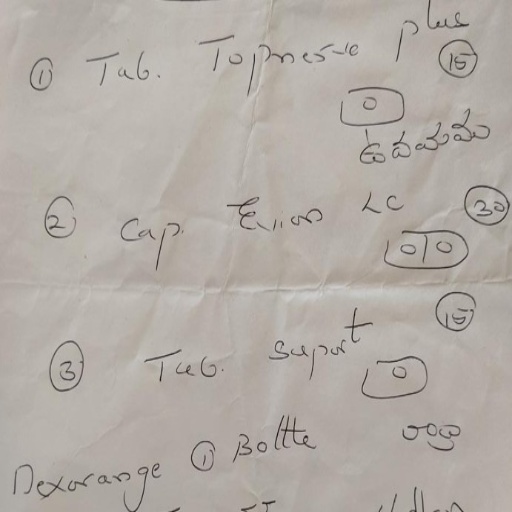 ① Tab. Topnerve plus ⑮
0
ఉదయము
② Cap. LC ㉚
0|0
③ Tab. suport ⑮
0
Dexorange ① Bottle రాత్రి